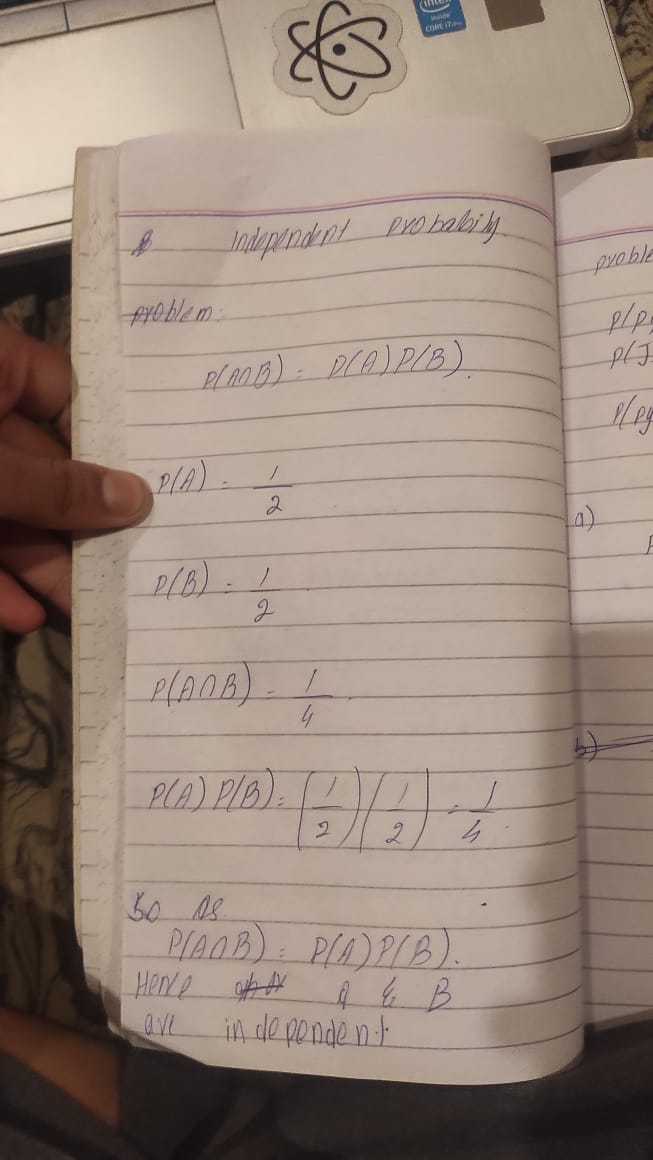 intel
inside
CORE i7
Independent probabily
problem:
P(A∩B) = P(A)P(B).
P(A) = 1/2
P(B) = 1/2
P(A∩B) = 1/4.
P(A) P(B) = (1/2)(1/2) = 1/4.
So as
P(A∩B) = P(A)P(B).
Hence A & B
are independent
proble
P(p
P(J
P(py
a)
b)